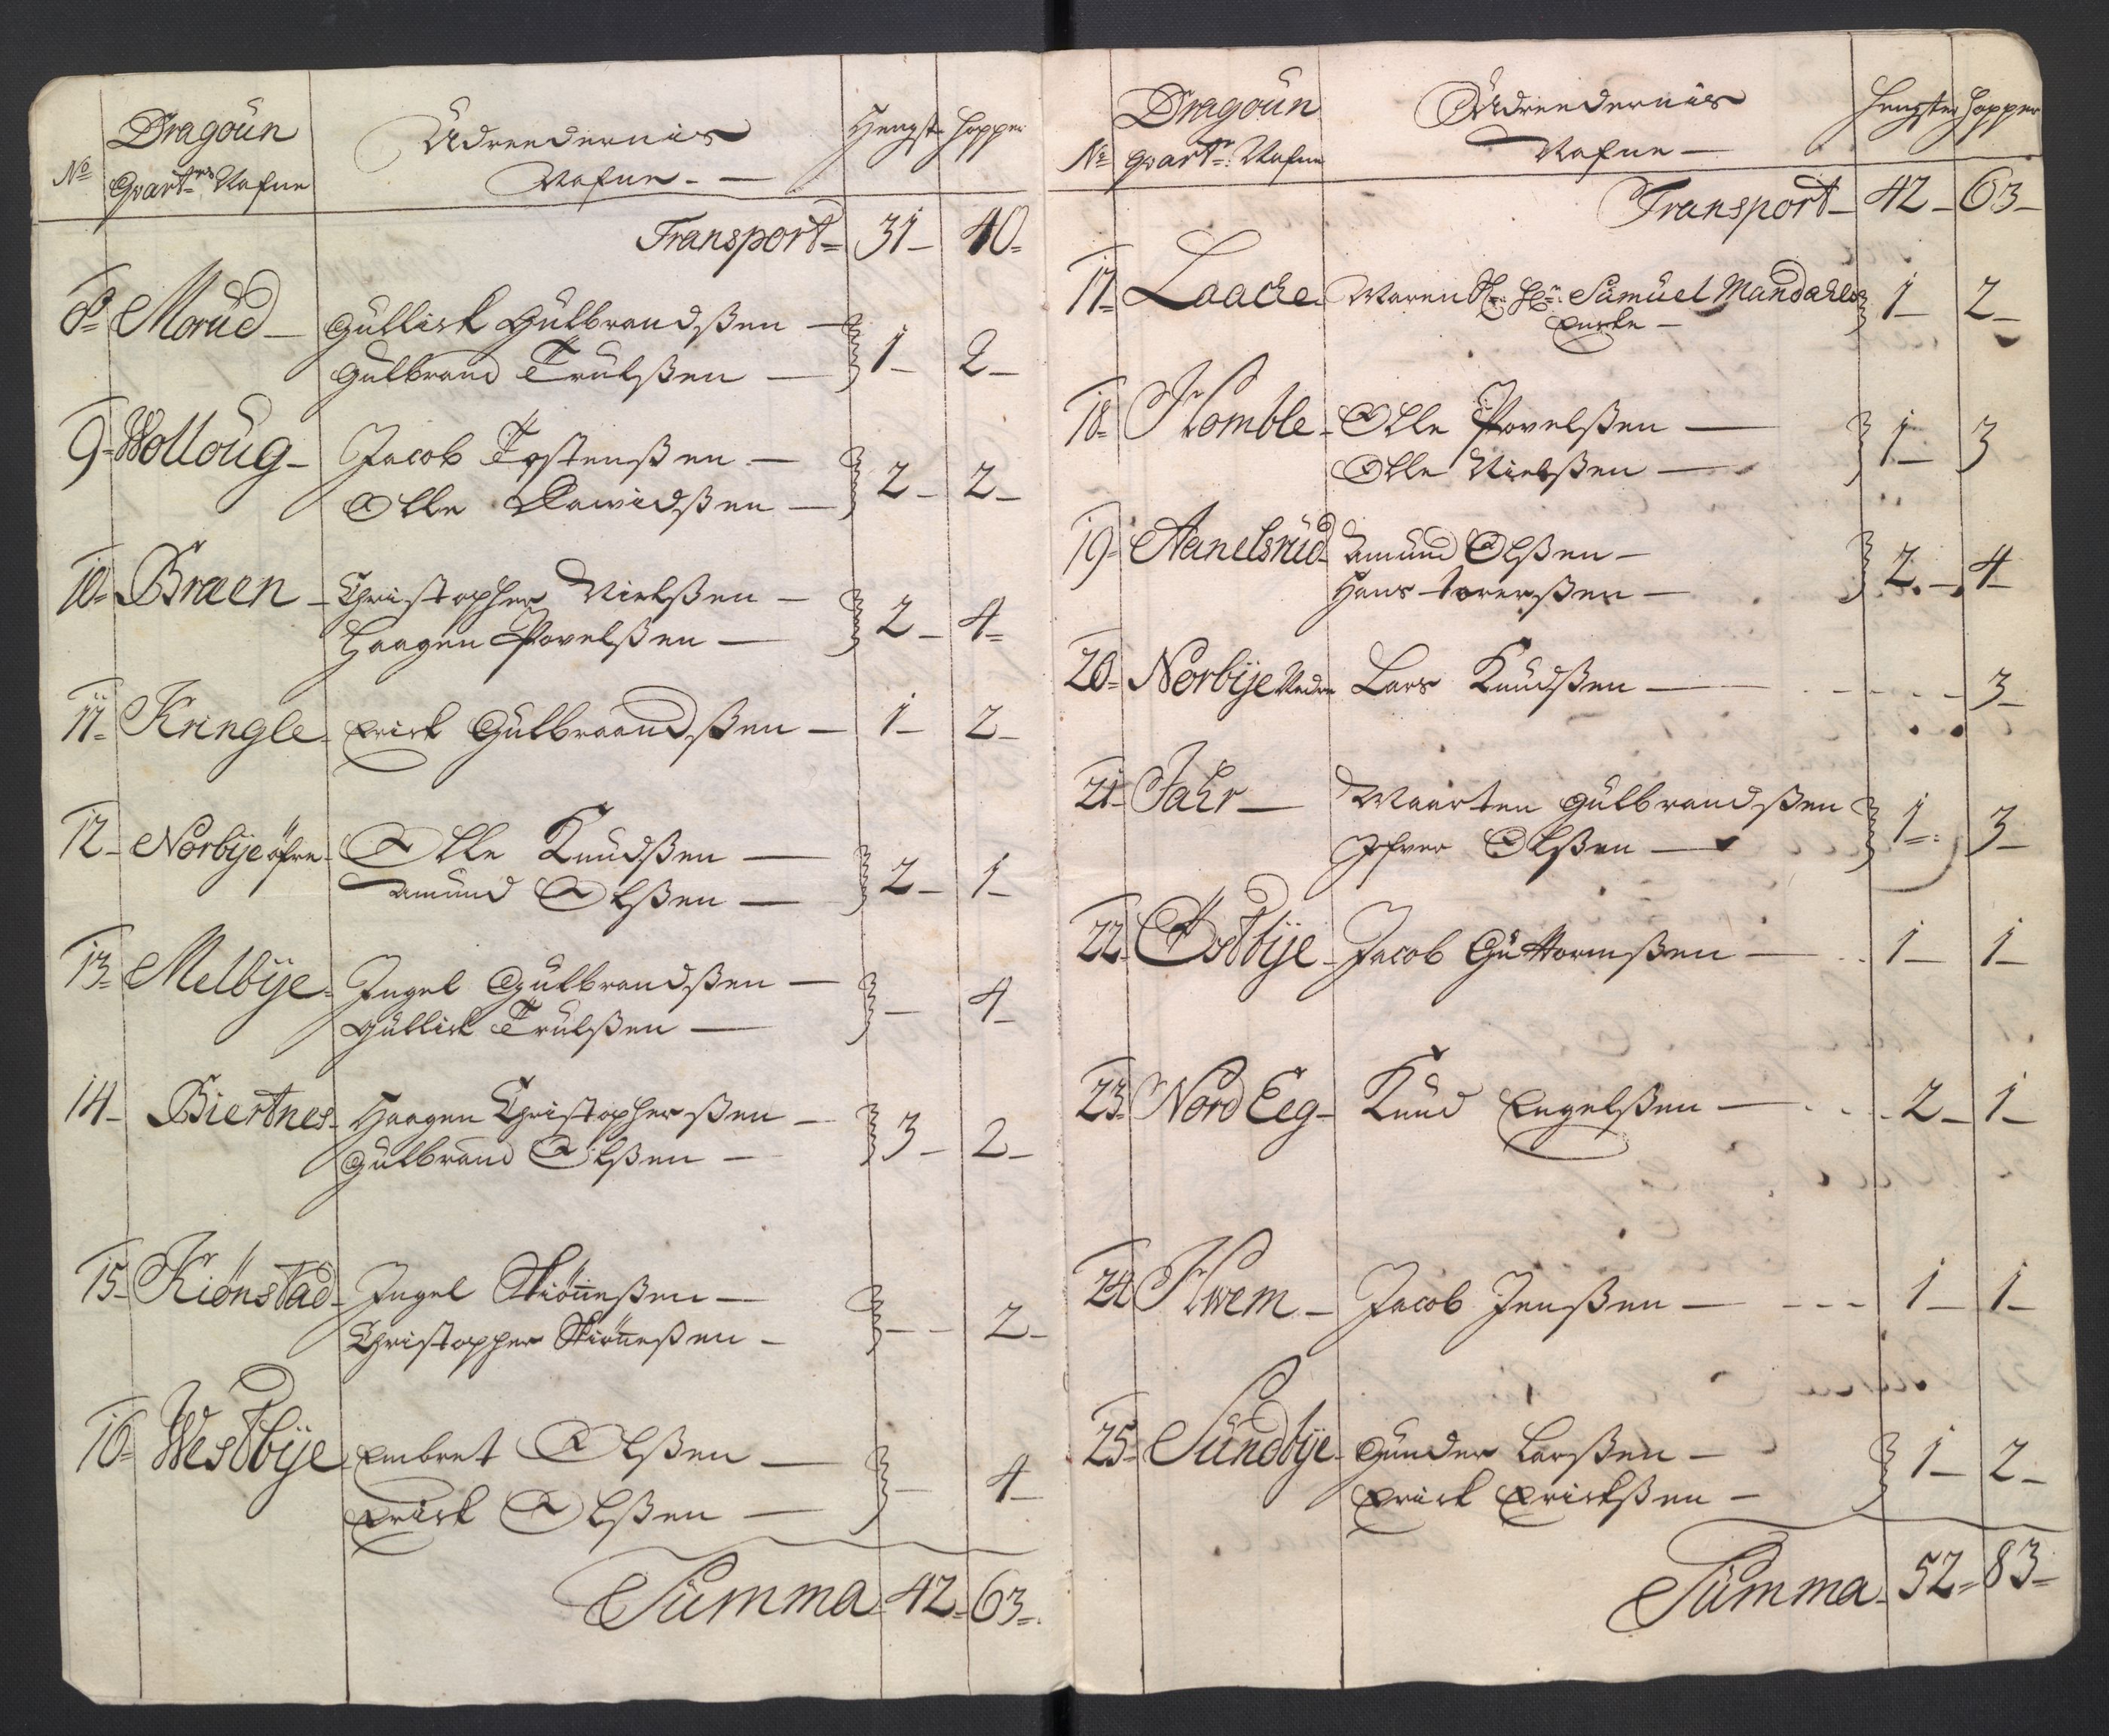 No Dragoun Qvart:rs Nafne Udreedernis Nafne Hengst Hopper
Transport 31 40
8 Morud Gullick Gulbrandßen
Gulbrand Trulßen 1 2
9 Wolloug Jacob Tostenßen
Olle Dawidßen 2 2
10 Braeen Christopher Nielßen
Haagen Povelßen 2 4
11 Kringle Erick Gulbraandßen 1 2
12 Norbÿe öfre Olle Knudßen
Amund Olßen 2 1
13 Melbÿe Ingel Gulbrandßen
Gullick Trulßen — 4
14 Biertnes Haagen Christopherßen
Gulbrand Olßen 3 2
15 Kiönstad Ingel
Christopher — 2
16 Westbÿe Embret Olßen
Erick Olßen — 4
Summa 42 63
No Dragoun Qvart:r Nafne Udreedernis Nafne Hengster Hopper
Transport 42 63
17 Laache Samuel Mandahls
Encke 1 2
18 Homble Olle Povelßen
Olle Nielßen 1 3
19 Aanelsrud Amund Olßen
Hans torerßen 2 4
20 Norbÿe Nedre Lars Knudßen 3
21 Jahr Maarten Gulbrandßen
Ifver Olßen 1 3
22 Östbÿe Jacob Guttormßen 1 1
23 Nord Eeg Knud Engelßen 2 1
24 Hwem Jacob Jenßen 1 1
25 Sundbÿe Gunder Larßen
Erick Erickßen 1 2
Summa 52 83